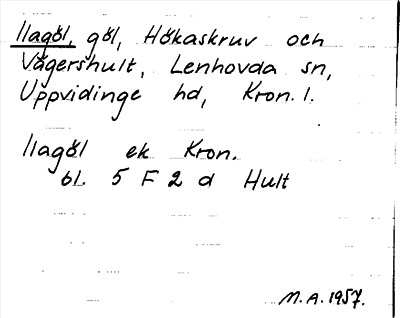 Ilagöl, göl, Hökaskruv och
Vägershult, Lenhovda sn,
Uppvidinge hd, Kron. l.
Ilagöl ek Kron.
bl. 5 F 2 d Hult
M.A. 1957.